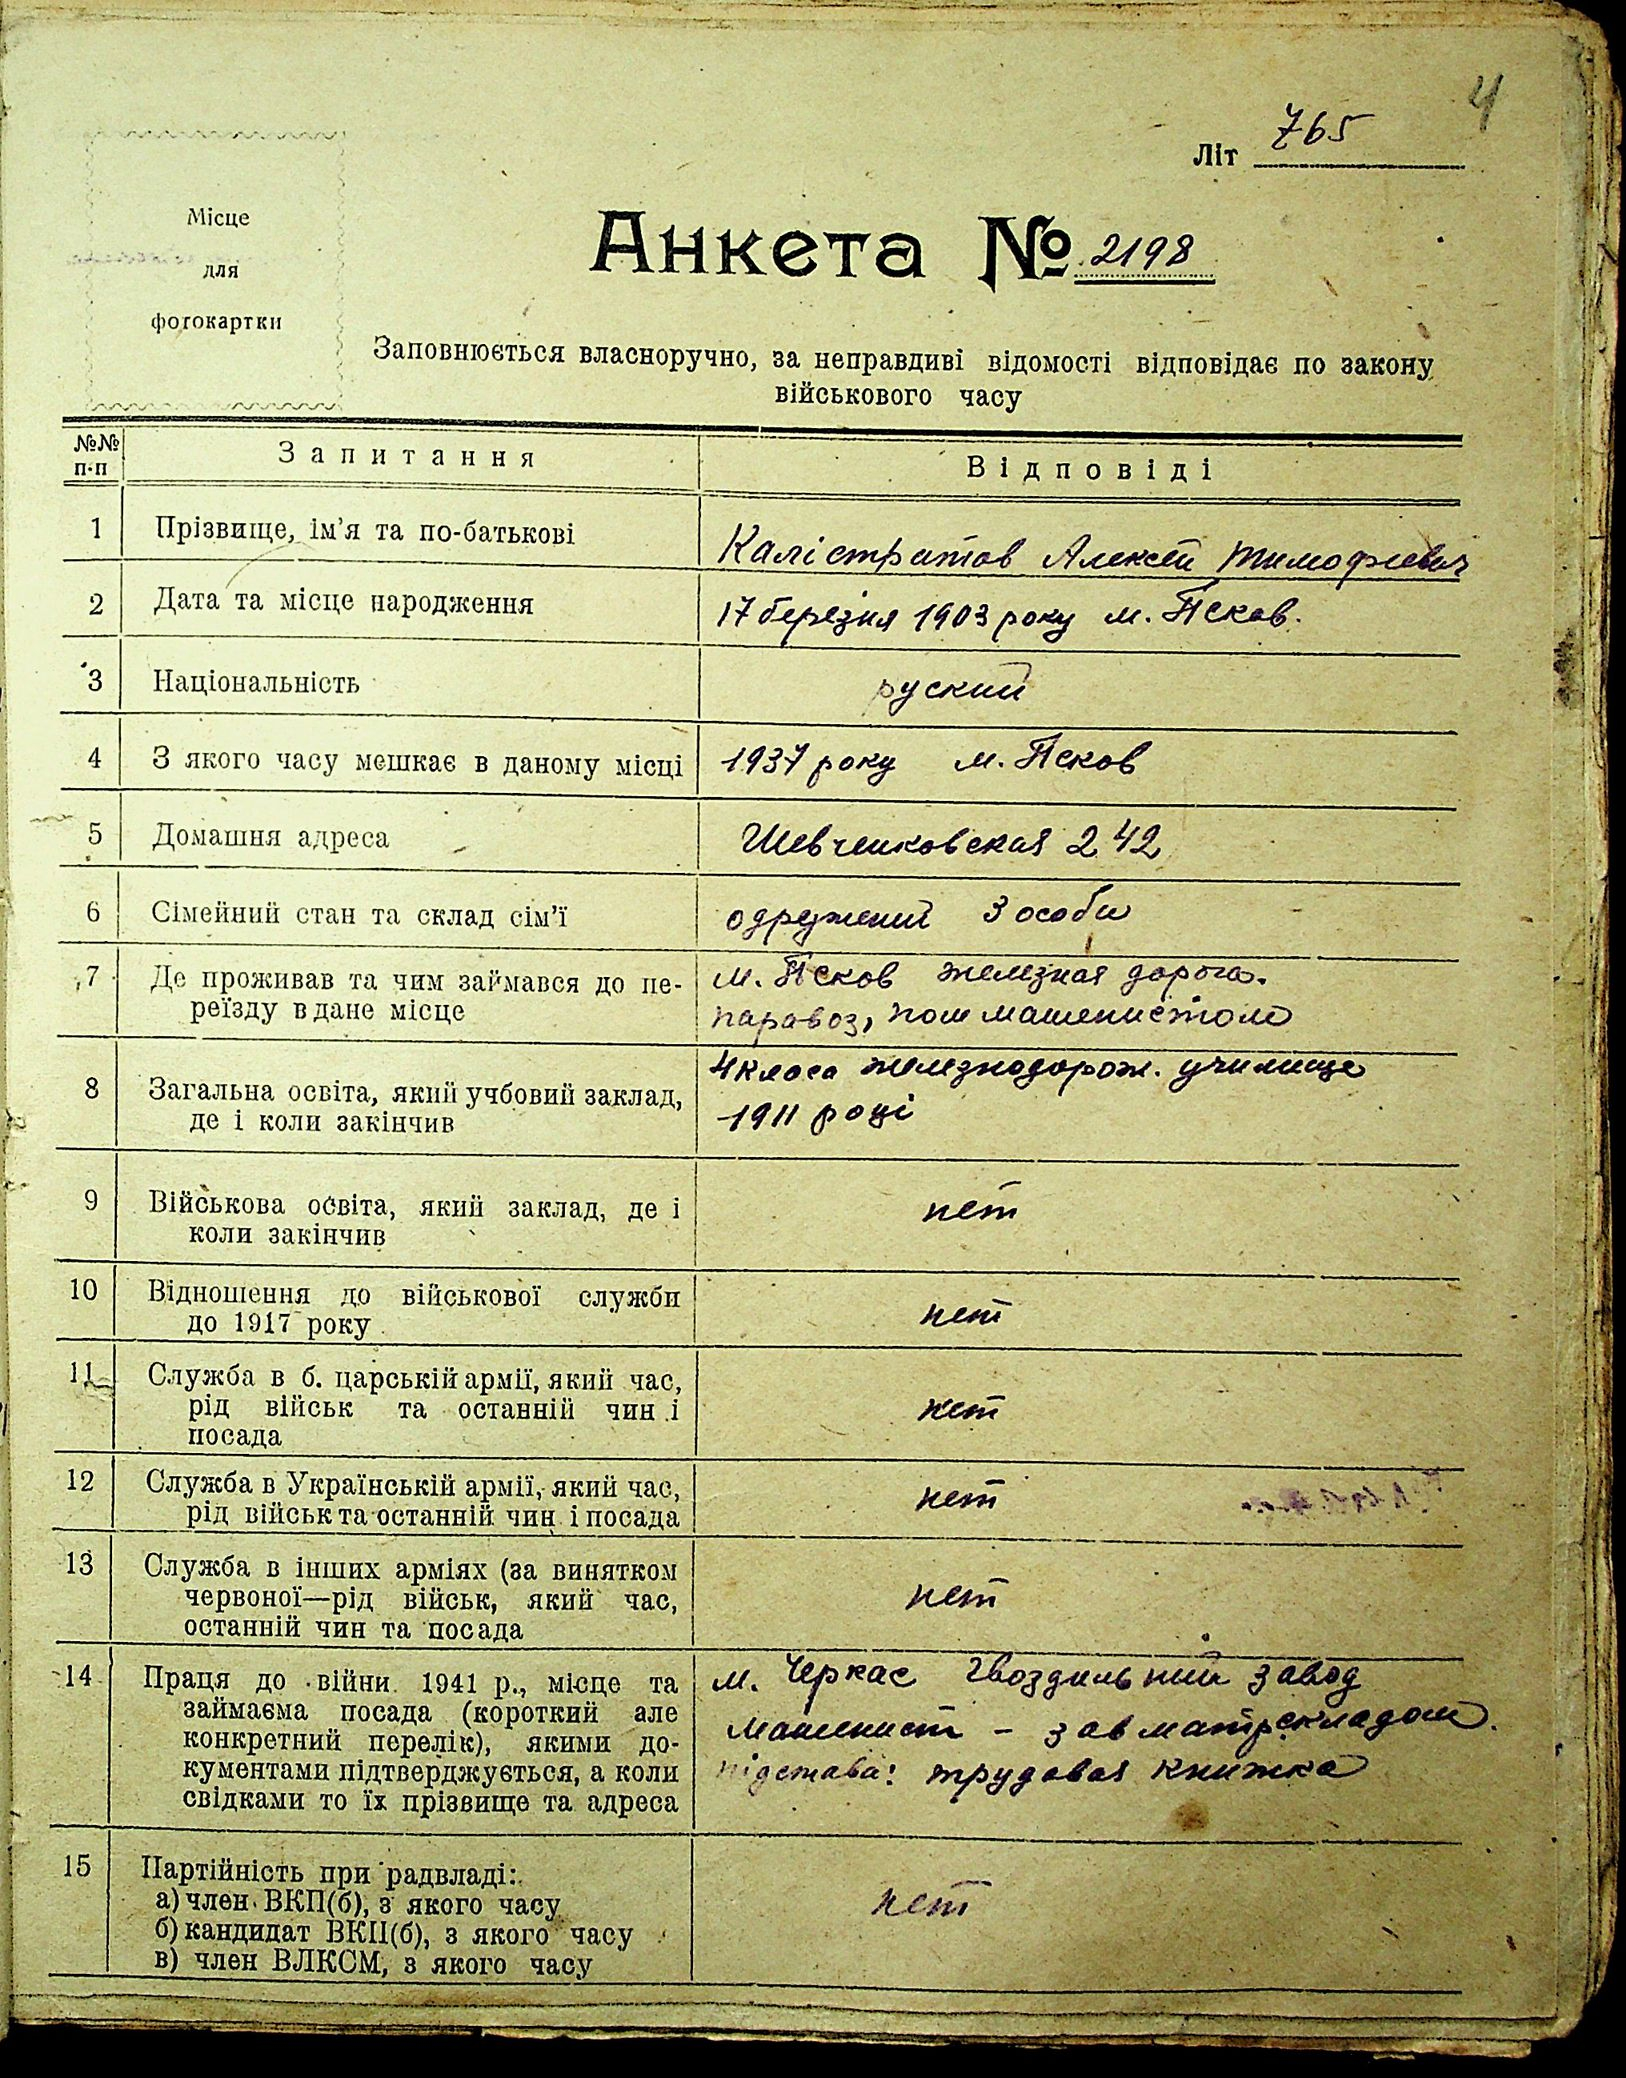 4
Літ 765
Місце
для
фотокартки
Анкета № 2198
Заповнюється власноручно, за неправдиві відомості відповідає по закону
військового часу
№№
п-п
Запитання
Відповіді
1
Прізвище, ім'я та по-батькові
Калістратов Алексей Тимофиевич
2
Дата та місце народження
17 березня 1903 року м. Псков.
3
Національність
руский
4
З якого часу мешкає в даному місці
1937 року м. Псков
5
Домашня адреса
Шевченковская 242
6
Сімейний стан та склад сім'ї
одружений 3 особи
7
Де проживав та чим займався до пе-
реїзду в дане місце
м. Псков железная дорога.
паравоз, пом машенистом
8
Загальна освіта, який учбовий заклад,
де і коли закінчив
4 класа железнодорож. училище
1911 році
9
Військова освіта, який заклад, де і
коли закінчив
нет
10
Відношення до військової служби
до 1917 року
нет
11
Служба в б. царській армії, який час,
рід військ та останній чин і
посада
нет
12
Служба в Українській армії, який час,
рід військ та останній чин і посада
нет
13
Служба в інших арміях (за винятком
червоної—рід військ, який час,
останній чин та посада
нет
14
Праця до війни 1941 р., місце та
займаєма посада (короткий але
конкретний перелік), якими до-
кументами підтверджується, а коли
свідками то їх прізвище та адреса
м. Черкас Гвоздильний завод
машенист - зав матрскладом.
підстава: трудовая книжка
15
Партійність при радвладі:
а) член ВКП(б), з якого часу
б) кандидат ВКП(б), з якого часу
в) член ВЛКСМ, з якого часу
нет